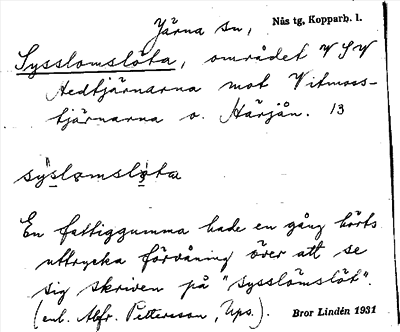 Järna sn, Nås tg, Kopparb. l.
Sysslomslöta, området V S V
Aedtjärnarna mot Vitmoss-
tjärnarna o. Härjån. 13
syslomslöta
En fattiggumma hade en gång hörts
uttrycka förvåning över att se
sig skriven på "sysslömslöt".
(enl. Alfr. Pettersson, Ups.). Bror Lindén 1931